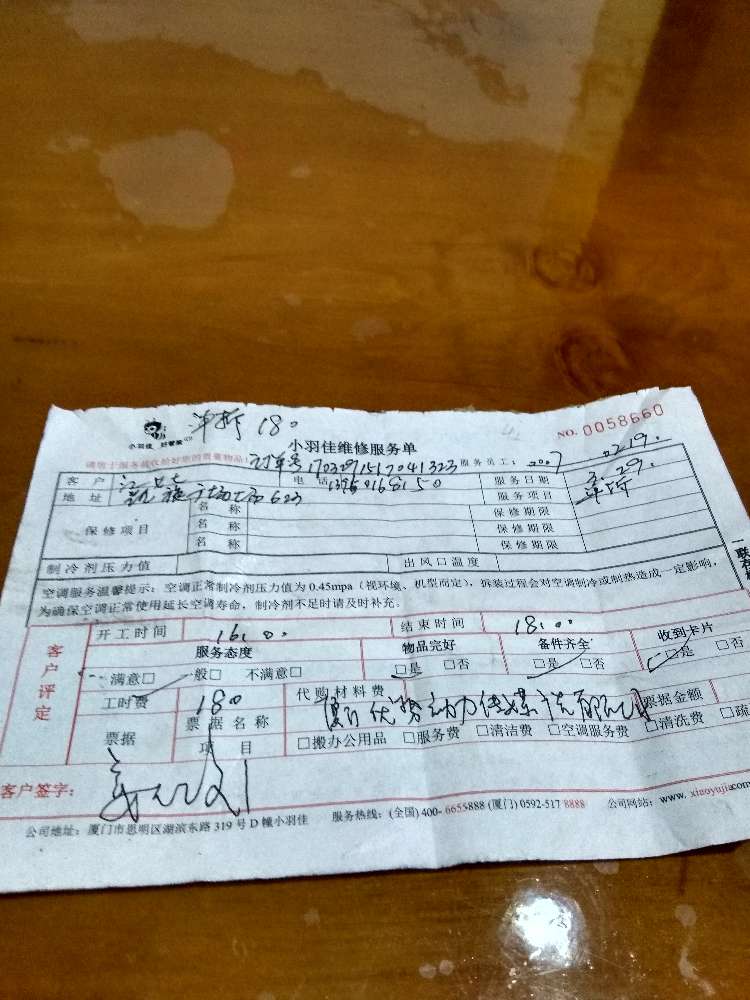 单拆 180
小羽佳 好管家
小羽佳维修服务单
NO. 0058660
请勿于服务验收给好您的贵重物品: 订单号170329151704323 服务员工: 0219.
客户 江女士 电话 服务日期 3.29.
地址 凯旋广场 623 服务项目 单拆
保修项目
名称 保修期限
名称 保修期限
名称 保修期限
制冷剂压力值 出风口温度
空调服务温馨提示: 空调正常制冷剂压力值为 0.45mpa (视环境、机型而定), 拆装过程会对空调制冷或制热造成一定影响,
为确保空调正常使用延长空调寿命, 制冷剂不足时请及时补充。
一联存
客户评定
开工时间 16.00 结束时间 18.00
服务态度 物品完好 备件齐全 收到卡片
满意□ 一般□ 不满意□ □是 □否 □是 □否 □是 □否
工时费 180 代购材料费 票据金额
票据 票据名称
项目 □搬办公用品 □服务费 □清洁费 □空调服务费 □清洗费 □疏
客户签字:
公司地址: 厦门市思明区湖滨东路 319 号 D 幢小羽佳 服务热线: (全国) 400- 6655888 (厦门) 0592-517 8888 公司网站: www. xiaoyujia.com